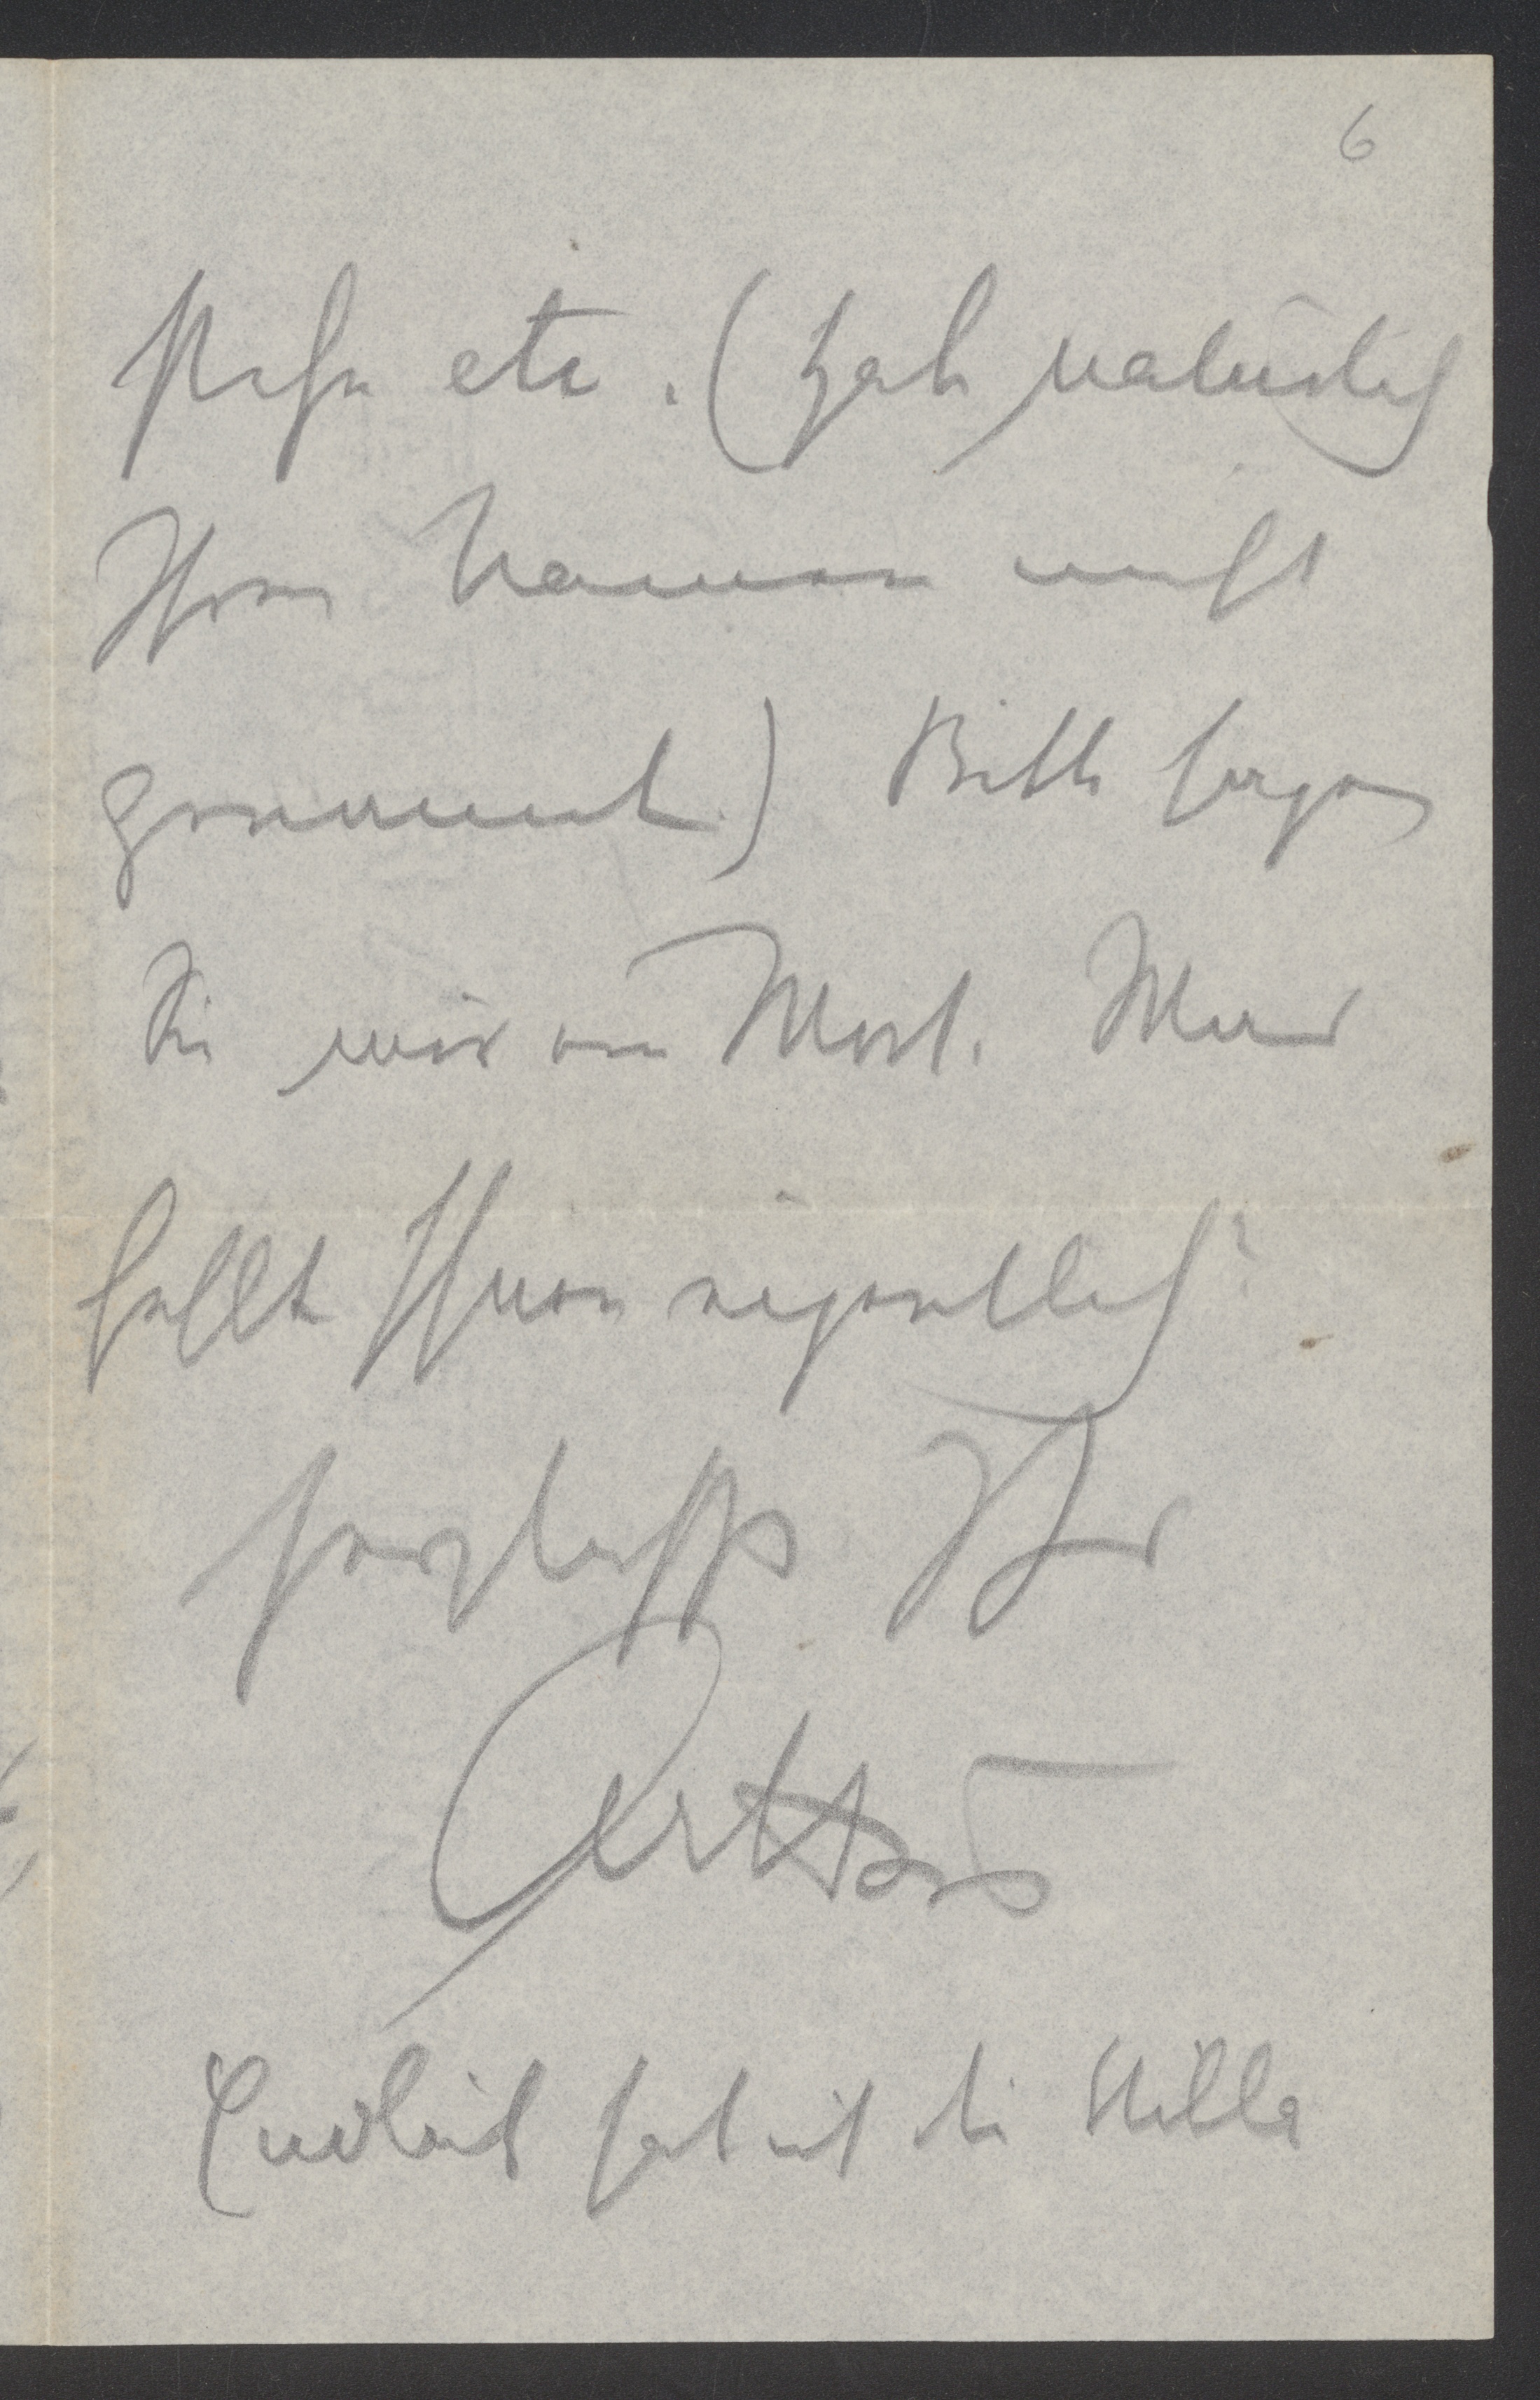 6
stehn etc. (Hab natürlich
Ihren Namen nicht
genannt.) Bitte sagen
Sie mir ein Wort. Was
fehlt Ihnen eigentlich?
herzlichst Ihr
Arthur
hat mit die Stelle